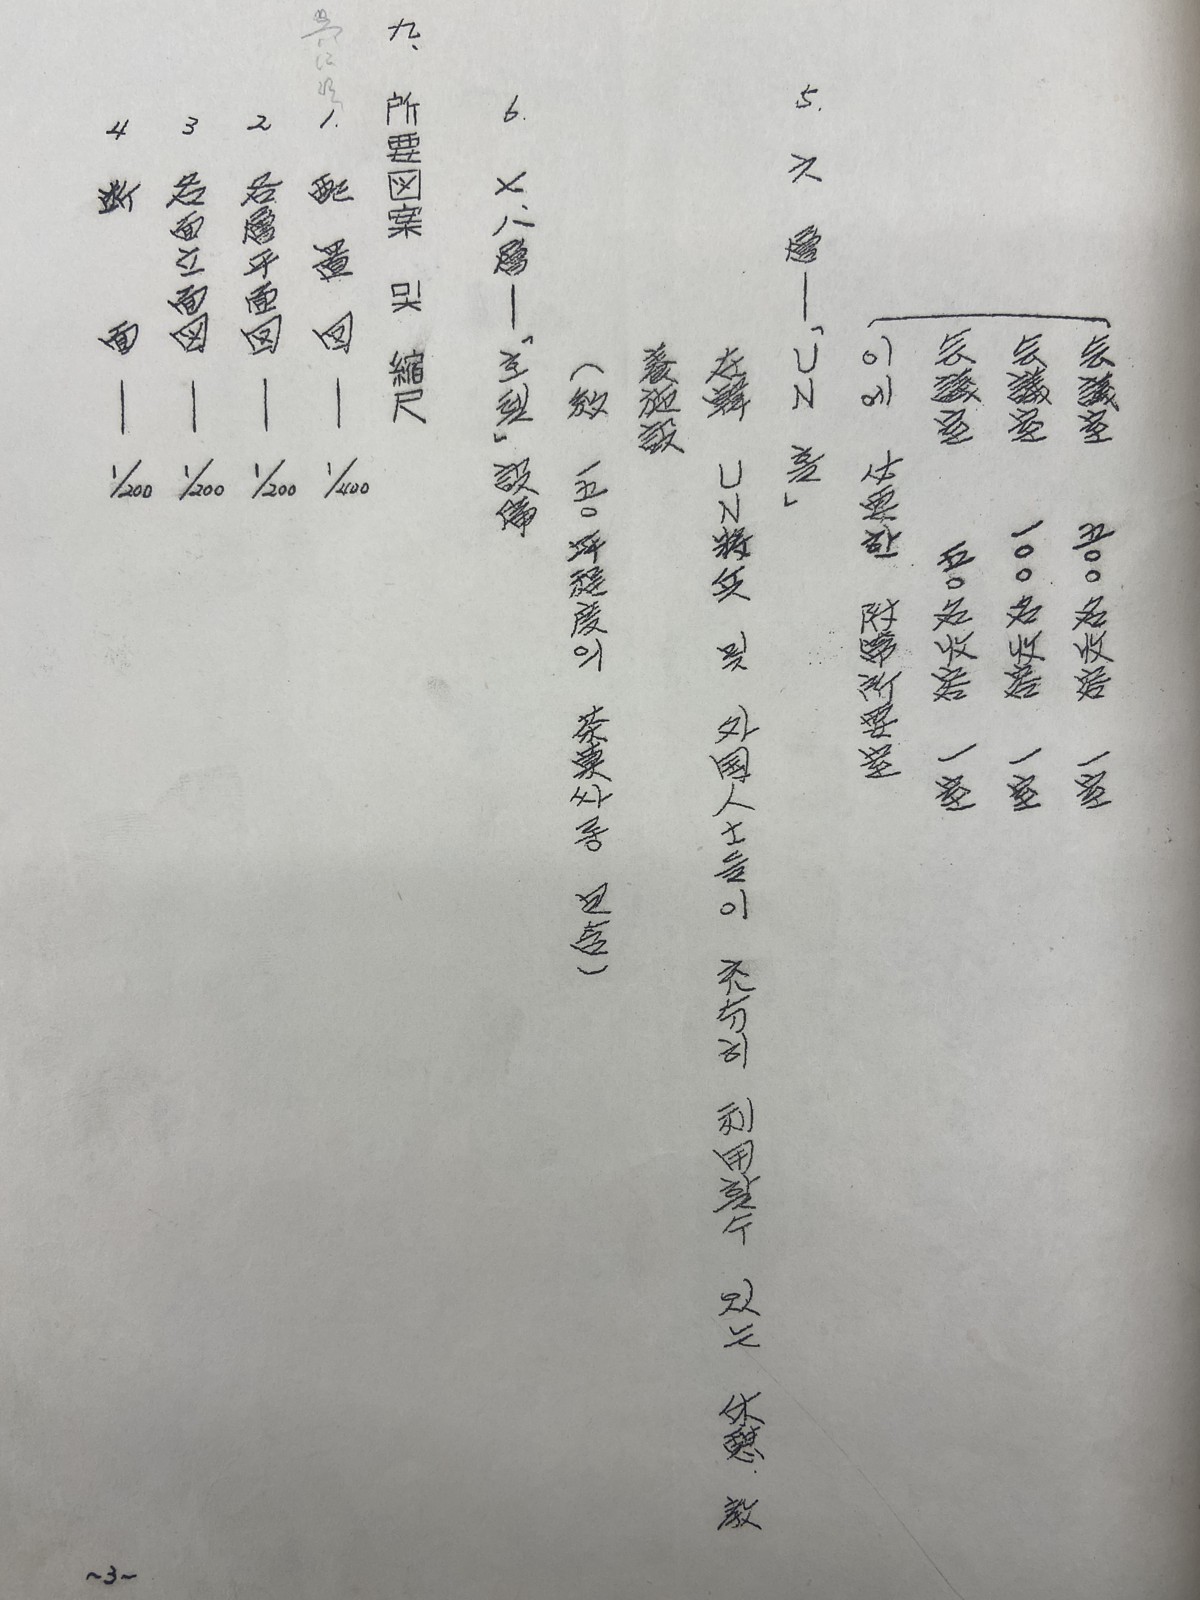 会議室 五〇〇名収容 一室
会議室 一〇〇名収容 一室
会議室 五〇名収容 一室
이에 必要한 附帶所要室
5. 六層―「UN홀」
在韓 UN將兵 및 外國人士들이 充分히 利用할수 있는 休憩 敎
養施設
(約 一五〇坪程度의 茶菓사롱 包含)
6. 七、八層―「호텔」設備
九、所要図案 및 縮尺
1. 配置図―1/400
2 各層平面図―1/200
3 各面立面図―1/200
4 断面―1/200
~3~